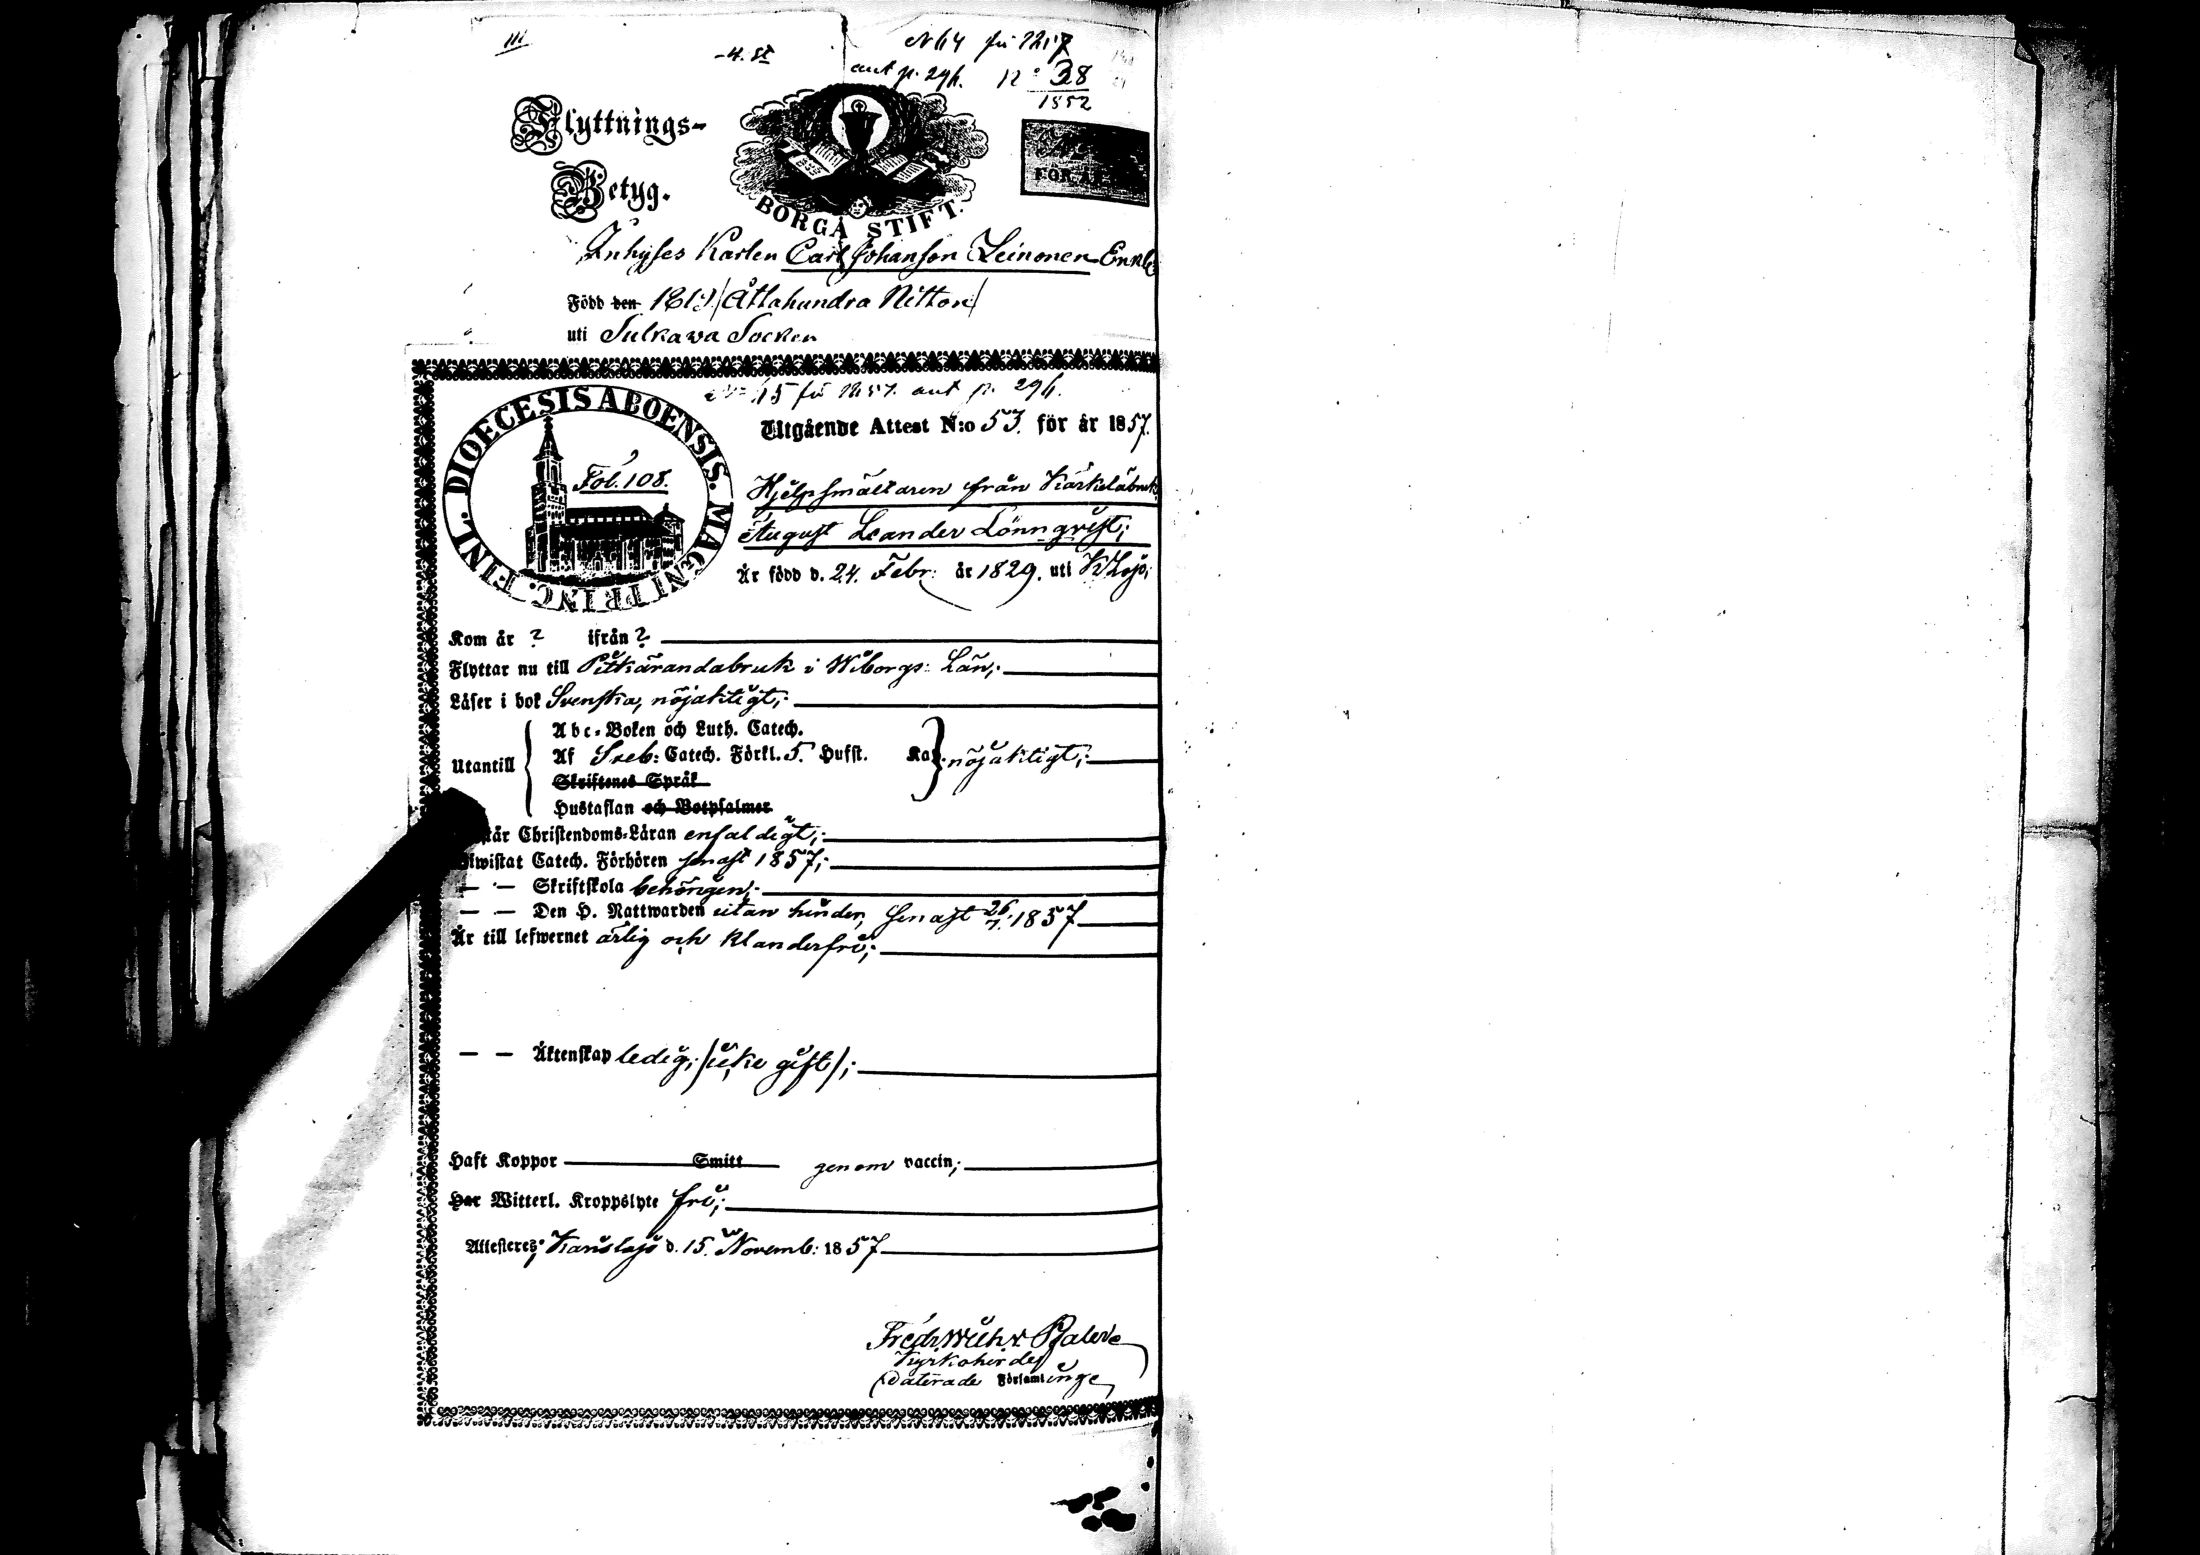 N 64 för 1217
ant p. 296. N:o 38
1852
Flyttnings-
Betyg.
BORGÅ STIFT.
Inhyses Karlen Carl Johanson Leinonen Enkl.
Född den 1819 /Åttahundra Nitton/
uti Sulkava Socken
N:o 65 för 1857. ant p. 296.
Utgående Attest N:o 53. för år 1857.
DIOECESIS ABOENSIS. MAGNI PRINC. FINL.
Fol. 108.
Hjelpsmältaren från Kärkeläbruk
August Leander Lönnqvist;
Är född d. 24. Febr: år 1829. uti K Lojo;
Kom år ? ifrån ?
Flyttar nu till Pitkärandabruk i Wiborgs: Län;
Läser i bok Svenska, nöjaktigt;
Utantill
Abc-Boken och Luth. Catech.
Af Sveb: Catech. Förkl. 5. Hufst. Ka nöjaktigt;
Skriftenes Språk
Hustaflan och Botpsalmer
står Christendoms-Läran enfaldigt;
wistat Catech. Förhören senast 1857;
— — Skriftskola behörigen;
— — Den H. Nattwarden utan hinder, senast 26/7. 1857
Är till lefwernet ärlig och klanderfri;
— — Äktenskap ledig; /icke gift/;
Haft Koppor Smitt genom vaccin;
Har Witterl. Kroppslyte fri;
Attesteres; Karislojo d. 15. Novemb: 1857
Fredr. Wilh.
Kyrkoherde
Daterade Församlinge